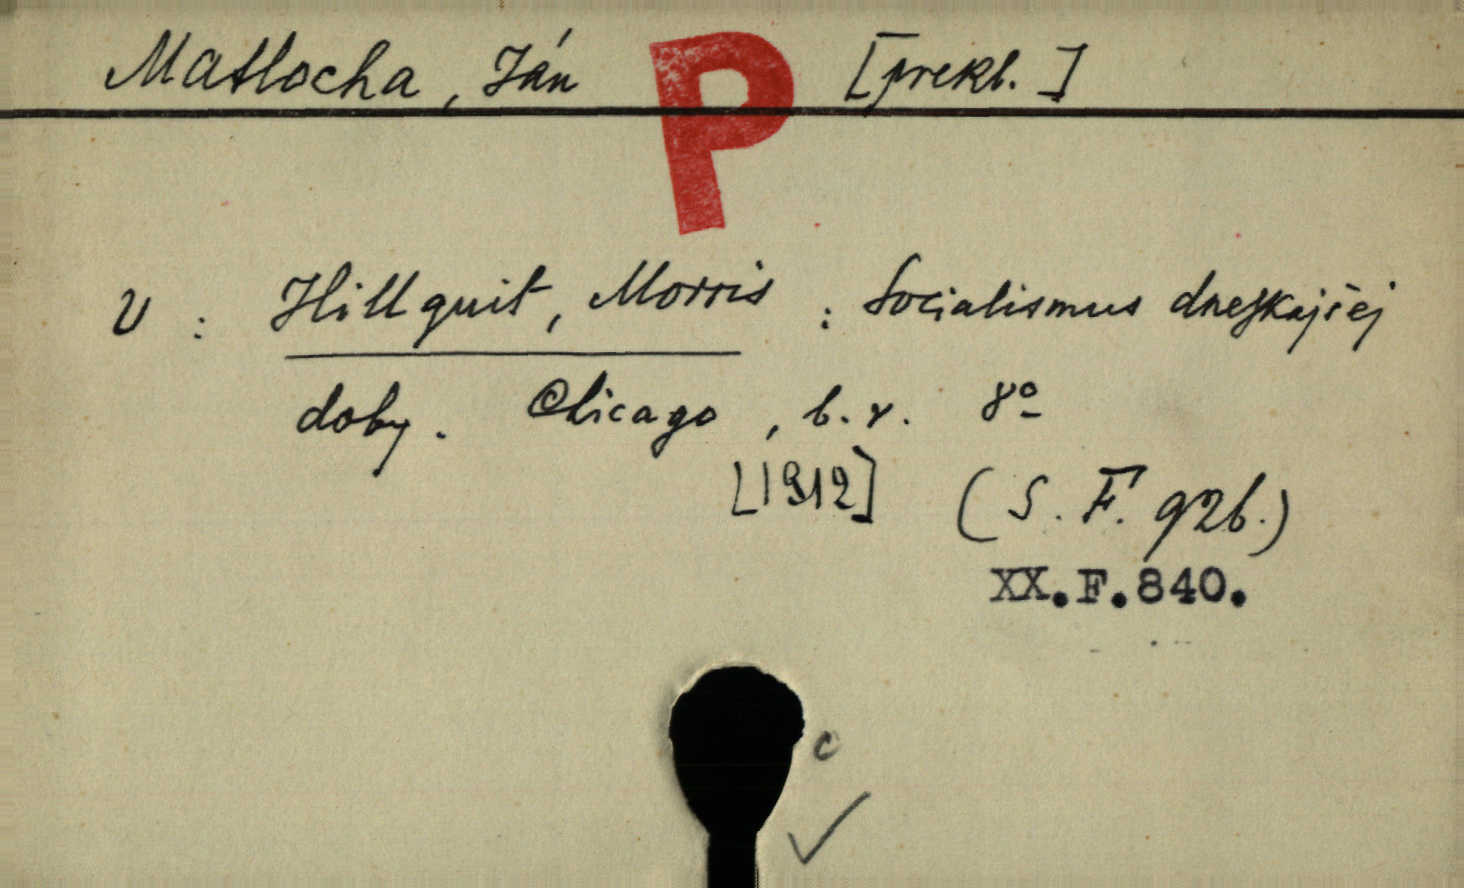 Matlocha, Ján P [prekl.]
V : Hillquit, Morris : Socialismus dneskajšej
doby. Chicago, b. r. 8º
[1912] (S. F. 92b.)
XX.F.840.
c